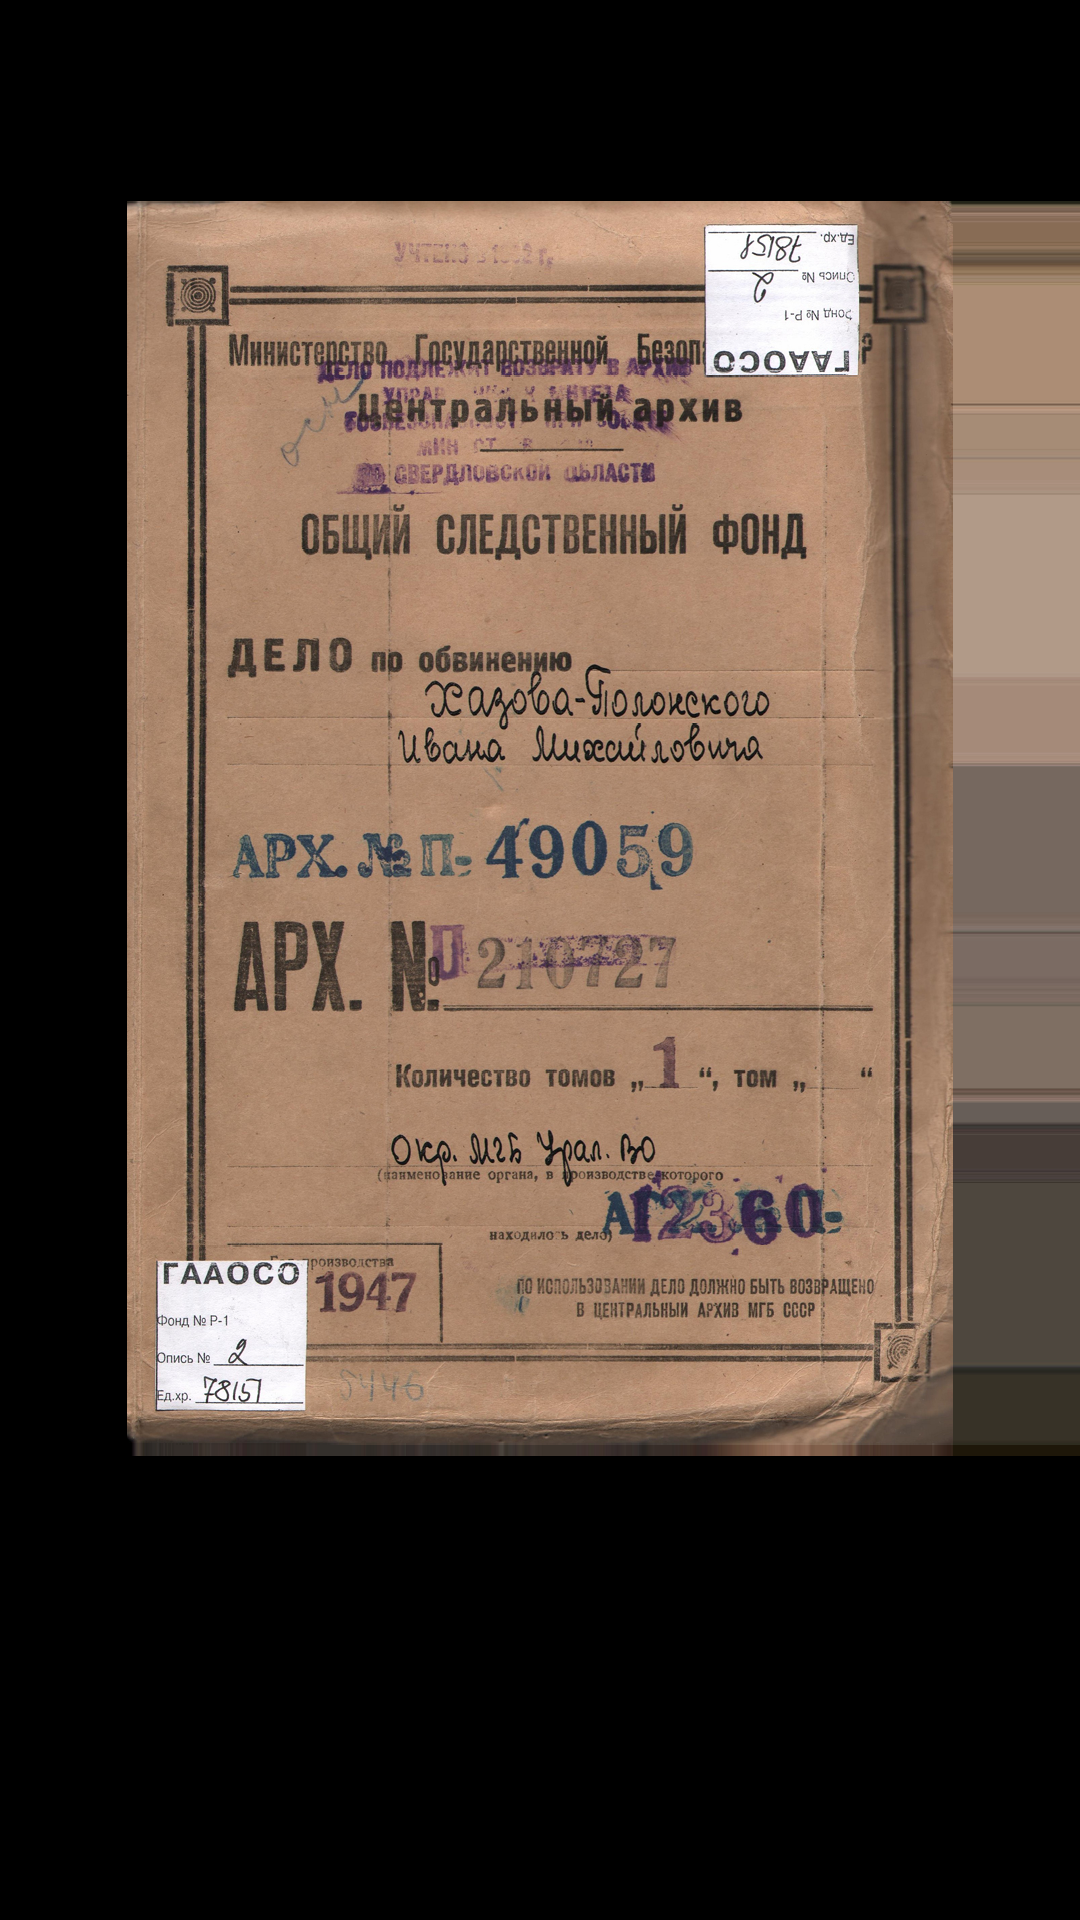 УЧТЕНО в 1962 г.
Ед.хр. 78151
Опись № 2
Фонд № Р-1
ГААОСО
Министерство Государственной
ДЕЛО ПОДЛЕЖИТ ВОЗВРАТУ В АРХИВ
Центральный архив
СВЕРДЛОВСКОЙ ОБЛАСТИ
ОБЩИЙ СЛЕДСТВЕННЫЙ ФОНД
ДЕЛО по обвинению
Хазова-Полонского
Ивана Михайловича
АРХ. № П- 49059
АРХ. № П 210727
Количество томов „ 1 “, том „ “
Окр. МГБ Урал. ВО
(наименование органа, в производстве которого
находилось дело)
12360
производства
1947
ПО ИСПОЛЬЗОВАНИИ ДЕЛО ДОЛЖНО БЫТЬ ВОЗВРАЩЕНО
В ЦЕНТРАЛЬНЫЙ АРХИВ МГБ СССР
ГААОСО
Фонд № Р-1
Опись № 2
Ед.хр. 78151
5446